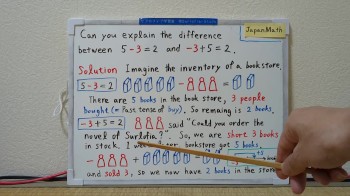 JapanMath
Can you explain the difference
between 5-3=2 and -3+5=2.
Solution Imagine the inventory of a bookstore.
5-3=2 - =
There are 5 books in the book store, 3 people
bought (= Past tense of buy). So remaining is 2 books.
-3+5=2 said "Could you order the
novel of So, we are short 3 books
in stock. I bookstore got 5 books.
- + =
and sold 3, so we now have 2 books in the store.